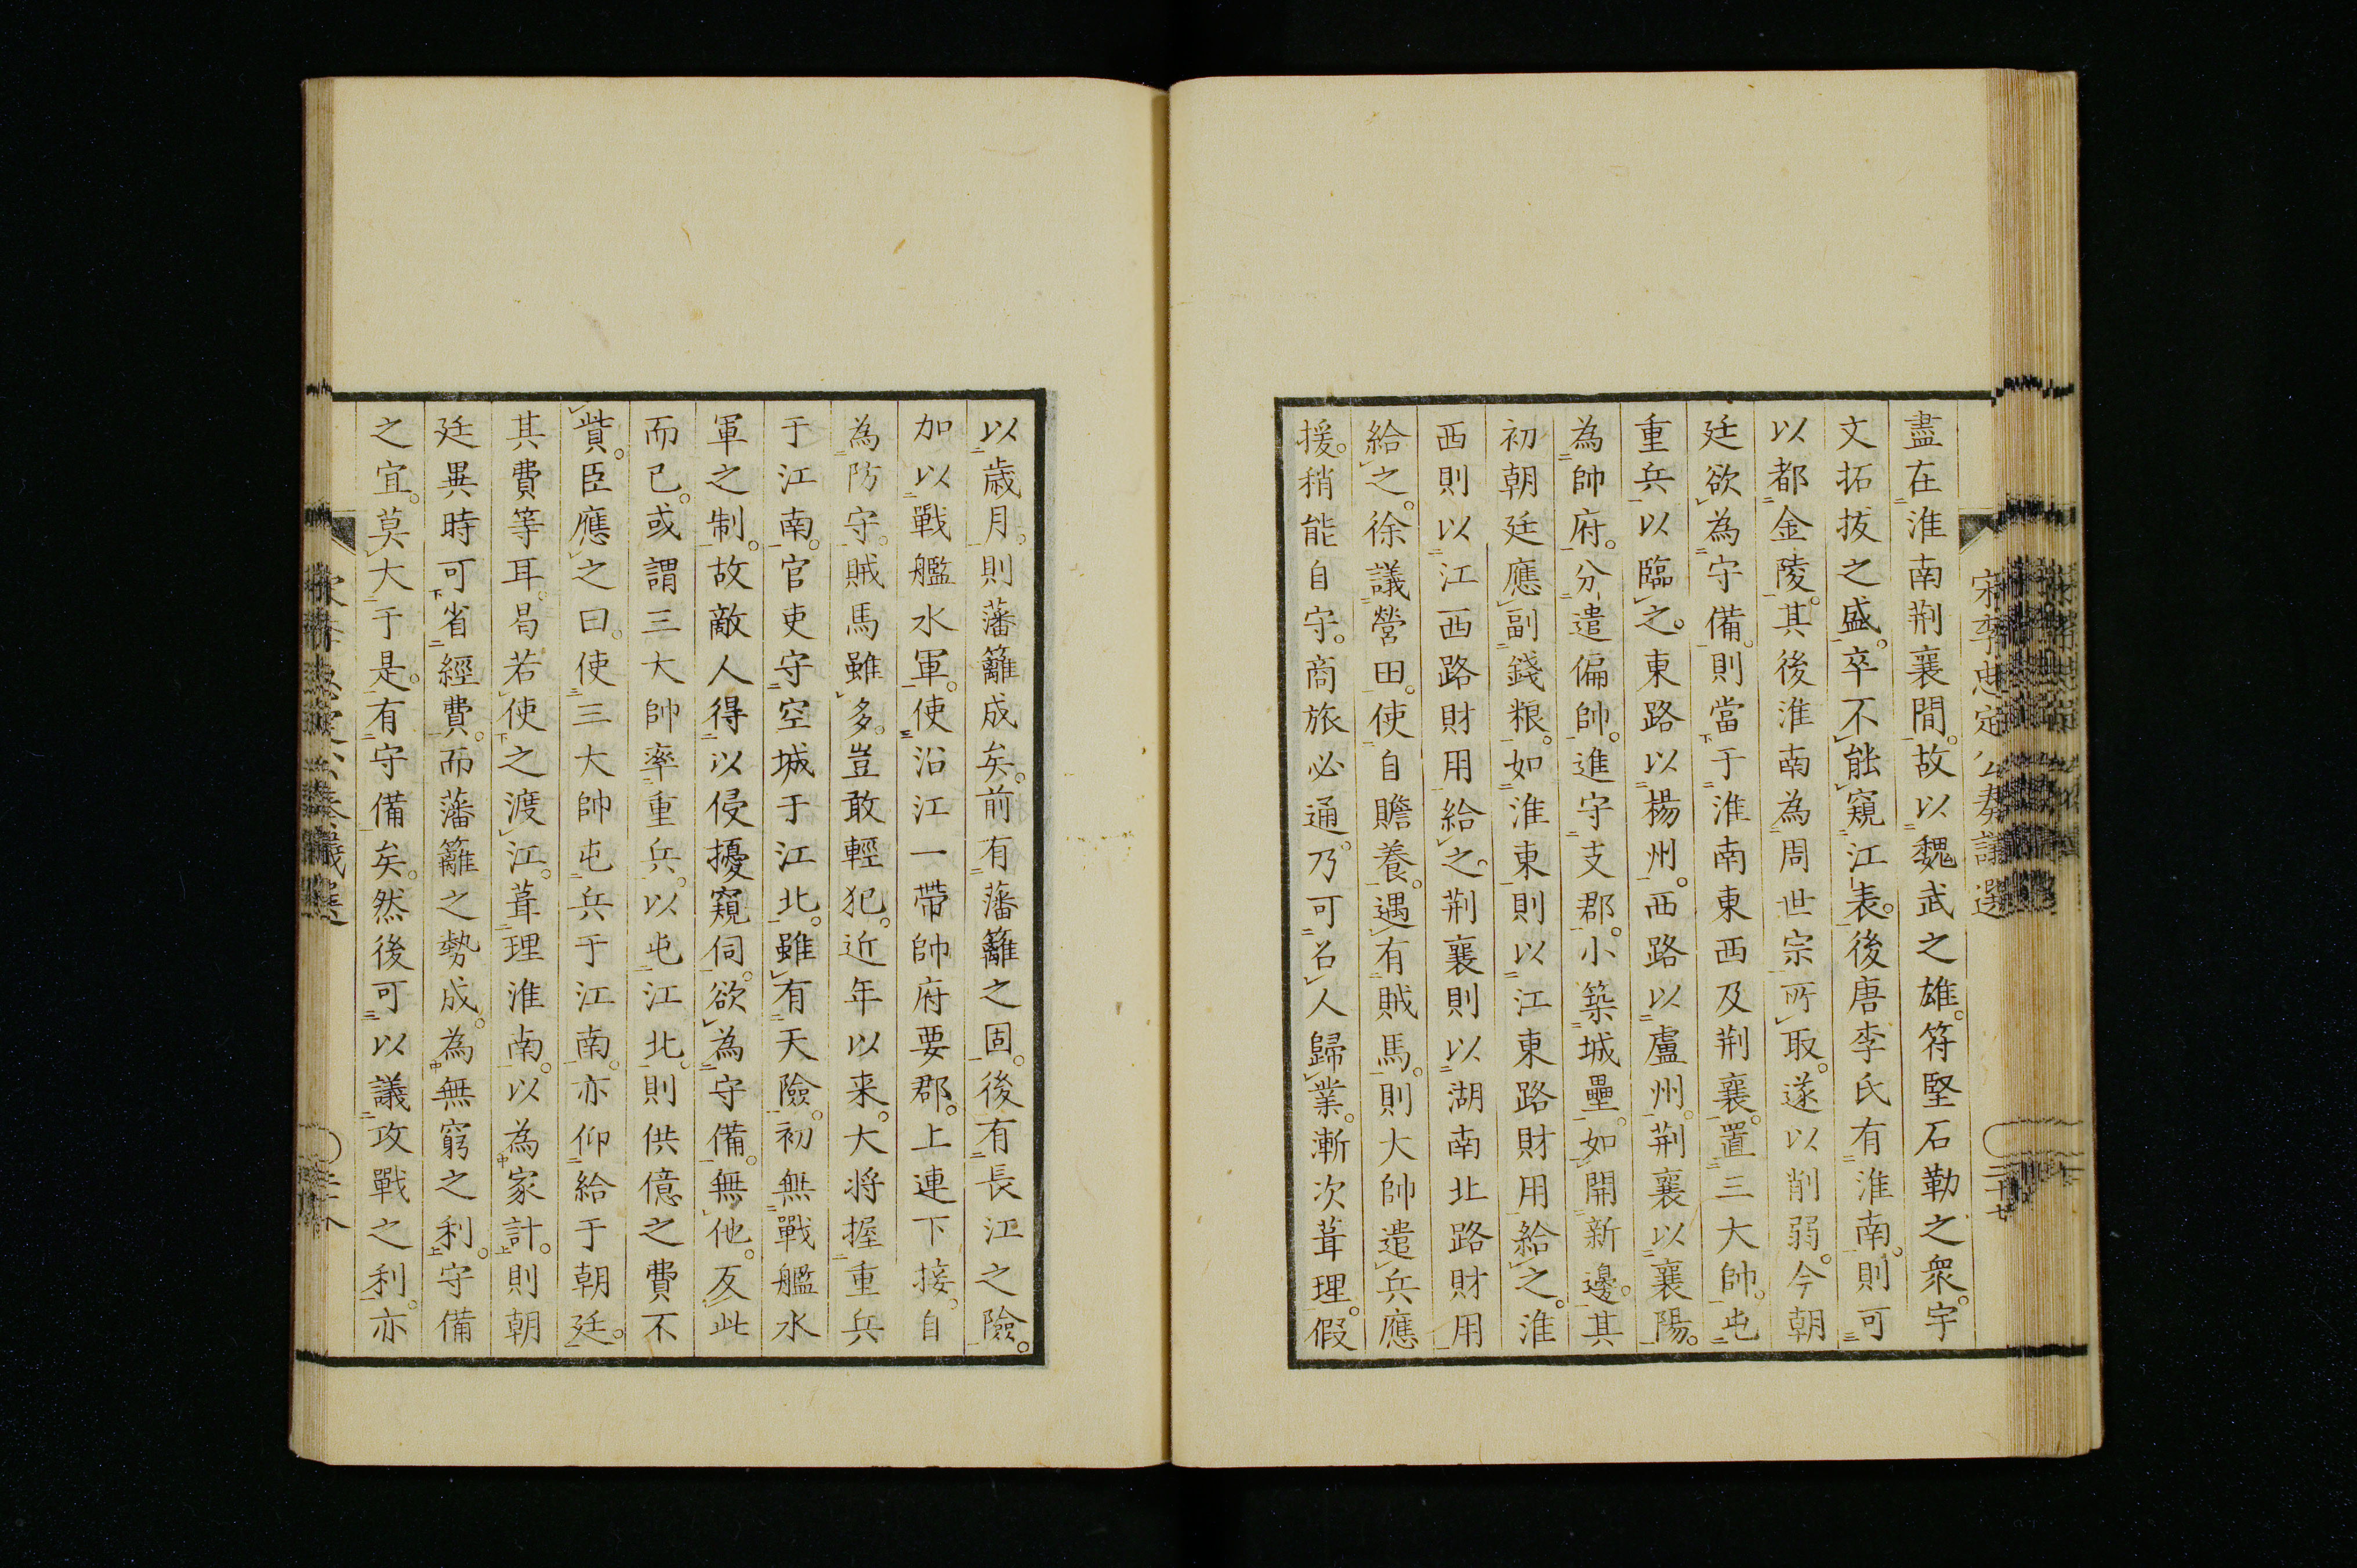 盡在淮南荆襄間。故以魏武之雄。符堅石勒之衆。宇
文拓拔之盛。卒不能窺江表。後唐李氏有淮南。則可
以都金陵。其後淮南為周世宗所取。遂以削弱。今朝
廷欲為守備。則當于淮南東西及荆襄。置三大帥。屯
重兵以臨之。東路以楊州。西路以廬州。荆襄以襄陽。
為帥府。分遣偏帥。進守支郡。小築城壘。如開新邊。其
初朝廷應副錢粮。如淮東則以江東路財用給之。淮
西則以江西路財用給之。荆襄則以湖南北路財用
給之。徐議營田。使自贍養。遇有賊馬。則大帥遣兵應
援。稍能自守。商旅必通。乃可召人歸業。漸次葺理。假
宋李忠定公奏議選
二十七
以歳月。則藩籬成矣。前有藩籬之固。後有長江之險。
加以戰艦水軍。使沿江一帶帥府要郡。上連下接。自
為防守。賊馬雖多。豈敢輕犯。近年以来。大将握重兵
于江南。官吏守空城于江北。雖有天險。初無戰艦水
軍之制。故敵人得以侵擾窺伺。欲為守備。無他。反此
而已。或謂三大帥率重兵。以屯江北。則供億之費不
貲。臣應之曰。使三大帥屯兵于江南。亦仰給于朝廷。
其費等耳。曷若使之渡江。葺理淮南。以為家計。則朝
廷異時可省經費。而藩籬之勢成。為無窮之利。守備
之宜。莫大于是。有守備矣。然後可以議攻戰之利。亦